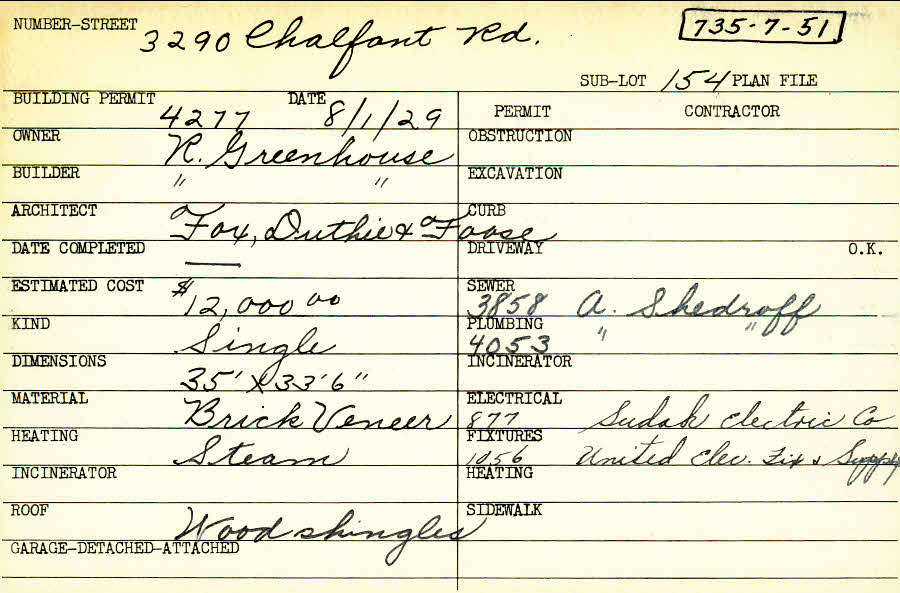 NUMBER-STREET 3290 Chalfant Rd.
735-7-51
SUB-LOT 154 PLAN FILE
BUILDING PERMIT 4277 DATE 8/1/29
OWNER R. Greenhouse
BUILDER " "
ARCHITECT Fox, Duthie & Foose
DATE COMPLETED —
ESTIMATED COST $12,000 00
KIND Single
DIMENSIONS 35' x 33'6"
MATERIAL Brick Veneer
HEATING Steam
INCINERATOR
ROOF Wood shingles
GARAGE-DETACHED-ATTACHED
PERMIT CONTRACTOR
OBSTRUCTION
EXCAVATION
CURB
DRIVEWAY O.K.
SEWER 3858 A. Shedroff
PLUMBING 4053 " "
INCINERATOR
ELECTRICAL 877 Sudak Electric Co
FIXTURES 1056 United Elec. Fix & Supply
HEATING
SIDEWALK